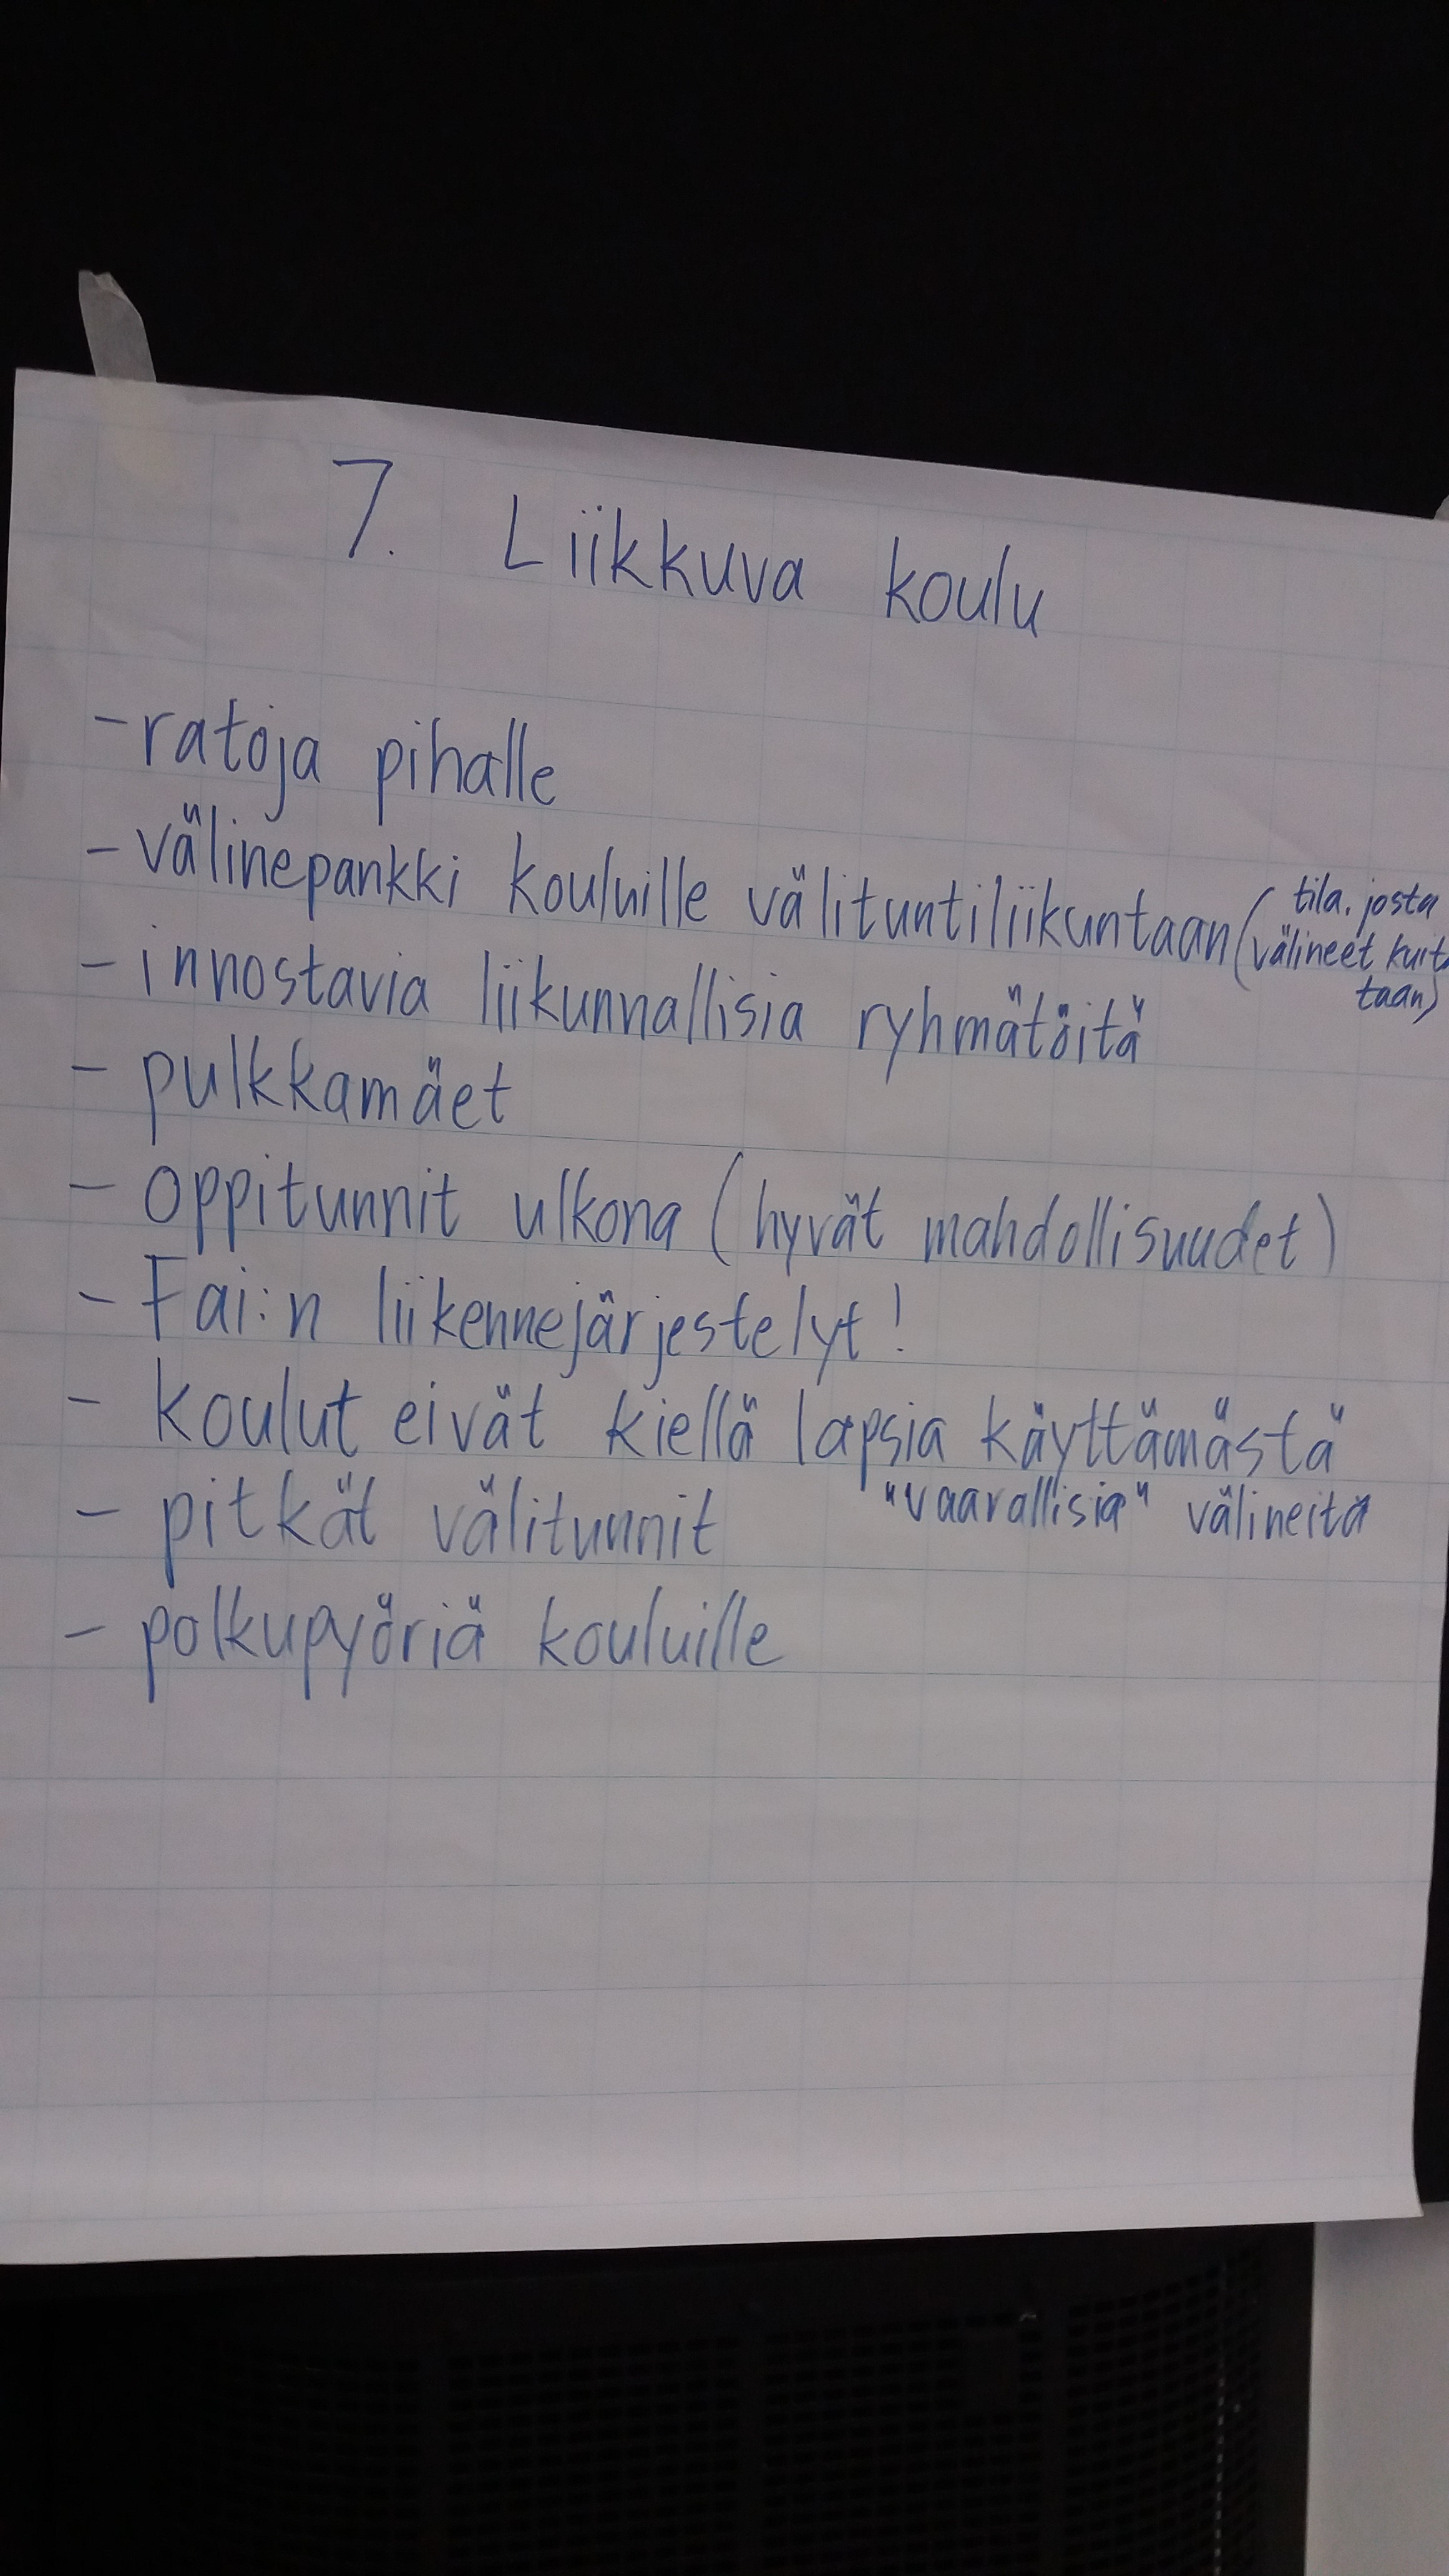 7. Liikkuva koulu
- ratoja pihalle
- välinepankki kouluille välituntiliikuntaan (tila, josta
välineet kuit
taan)
- innostavia liikunnallisia ryhmätöitä
- pulkkamäet
- oppitunnit ulkona (hyvät mahdollisuudet)
- Fai:n liikennejärjestelyt!
- koulut eivät kiellä lapsia käyttämästä
"vaarallisia" välineitä
- pitkät välitunnit
- polkupyöriä kouluille